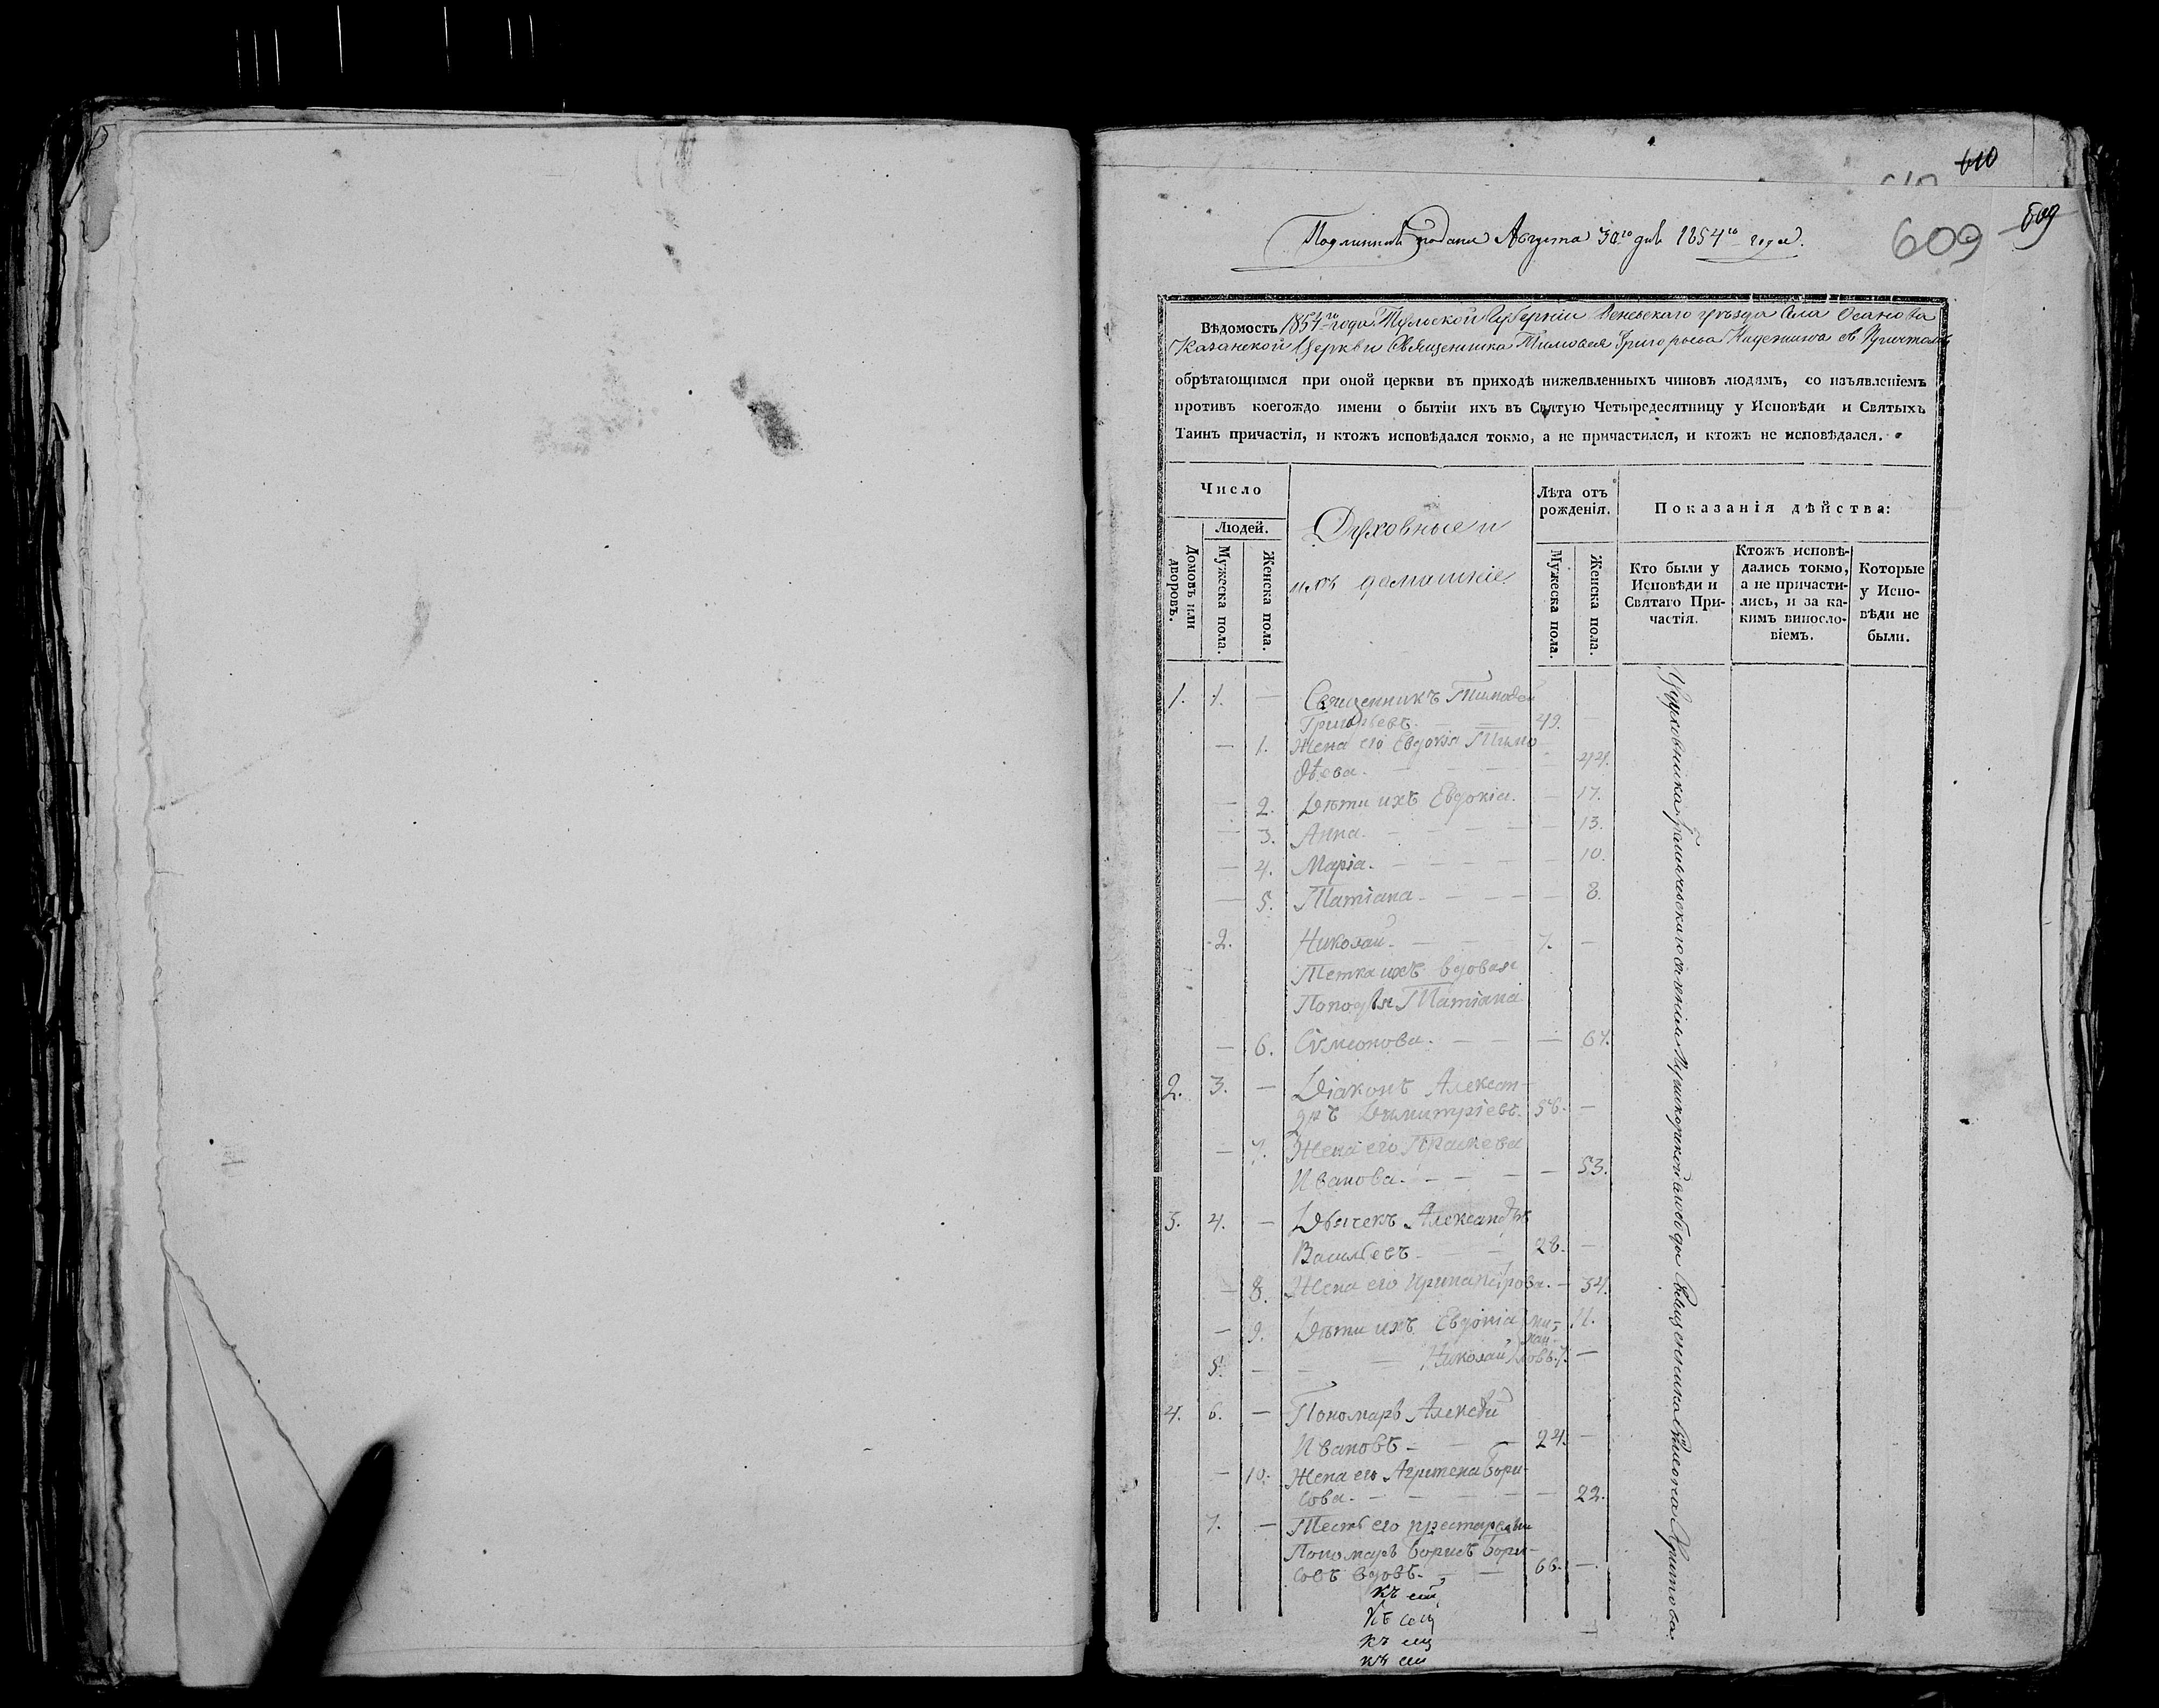 610
609
609
Подлинная подана Августа 30го дня 1854го года.
Вѣдомость 1854го года Тульской Губерніи Веневскаго уѣзда Села Осанова
Казанской Церкви Священника Тимофея Григорьева съ Причтомъ
обрѣтающимся при оной церкви въ приходѣ нижеявленныхъ чиновъ людямъ, со изъявленіемъ
противъ коегождо имени о бытіи ихъ въ Святую Четыредесятницу у Исповѣди и Святыхъ
Таинъ причастія, и ктожъ исповѣдался токмо, а не причастился, и ктожъ не исповѣдался.
Число
Людей.
Домовъ или дворовъ.
Мужеска пола.
Женска пола.
Духовные и
ихъ домашніе
Лѣта отъ
рожденія.
Мужеска пола.
Женска пола.
Показанія дѣйства:
Кто были у
Исповѣди и
Святаго При-
частія.
Ктожъ исповѣ-
дались токмо,
а не причасти-
лись, и за ка-
кимъ винословіемъ.
Которые
у Испо-
вѣди не
были.
1. 1. — Священникъ Тимоѳей
Григорьевъ. — — 49. —
— 1. Жена его Евдокіа Тимо
ѳѣева. — — — — 44.
— 2. Дѣти ихъ Евдокіа. — 17.
— 3. Анна. — — — — — 13.
— 4. Маріа. — — — — — 10.
— 5. Татіана — — — — — 8.
2. Николай. — — — 7. —
Тетка ихъ вдовая
Попадья Татіана
— 6. Сѵмеонова. — — — 67.
2. 3. — Діаконъ Алексан-
дръ Димитріевъ. 56. —
— 7. Жена его Праскева
Иванова. — — — — 53.
3. 4. — Дьячекъ Александръ
Васильевъ — — — 28. —
— 8. Жена его Ирина Петрова. — 34.
— 9. Дѣти ихъ Евдокіа Ми- 11.
хай-
5. — — — Николай ловъ. 7. —
4. 6. — Пономарь Алексѣй
Ивановъ — — — 24. —
— 10. Жена его Агриппена Бори-
сова. — — — — — 22.
7. — Тесть его престарелый
Пономарь Борисъ Бори-
совъ вдовъ. — — 66. —
У духовника Священника Симеона
къ сей